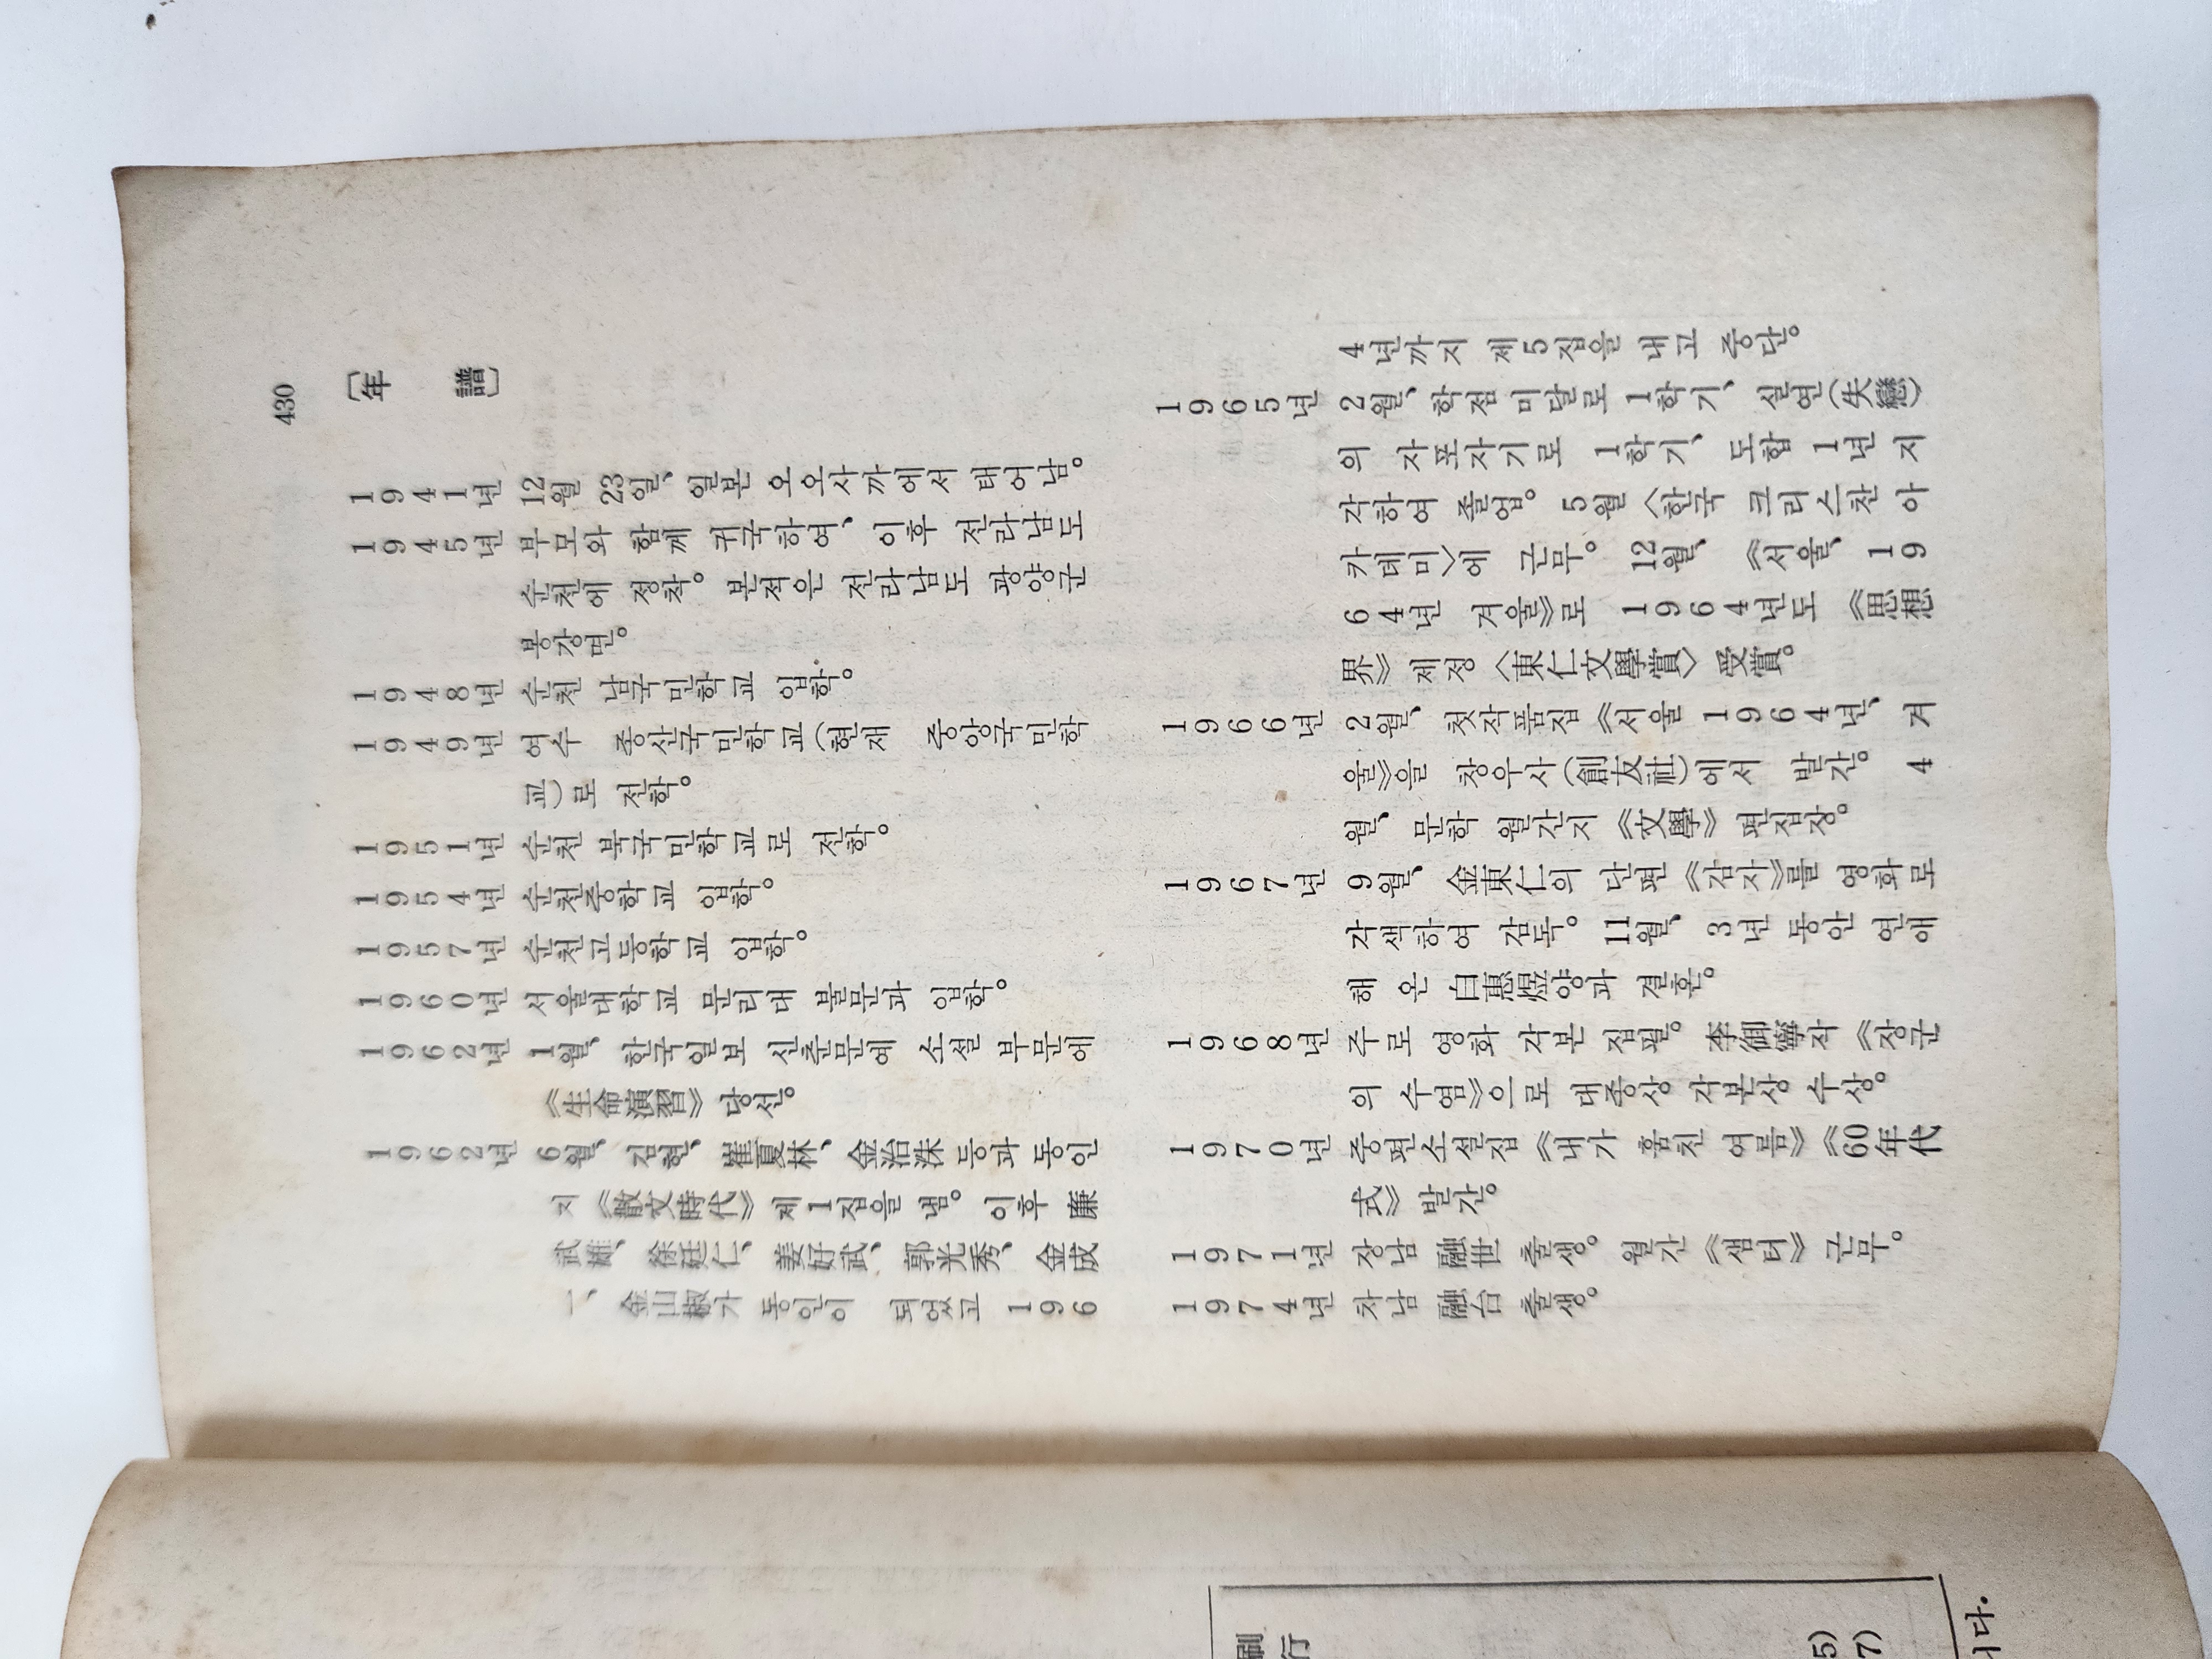 430
〔年 譜〕
1941년 12월 23일、 일본 오오사까에서 태어남。
1945년 부모와 함께 귀국하여、 이후 전라남도
순천에 정착。 본적은 전라남도 광양군
봉강면。
1948년 순천 남국민학교 입학。
1949년 여수 종산국민학교(현재 중앙국민학
교)로 전학。
1951년 순천 북국민학교로 전학。
1954년 순천중학교 입학。
1957년 순천고등학교 입학。
1960년 서울대학교 문리대 불문과 입학。
1962년 1월、 한국일보 신춘문예 소설 부문에
《生命演習》 당선。
1962년 6월、 김현、 崔夏林、 金治洙 등과 동인
지 《散文時代》 제1집을 냄。 이후 廉
武雄、 徐廷仁、 姜好武、 郭光秀、 金成
一、 金山椒가 동인이 되었고 196
4년까지 제5집을 내고 중단。
1965년 2월、 학점 미달로 1학기、 실연(失戀)
의 자포자기로 1학기、 도합 1년 지
각하여 졸업。 5월 〈한국 크리스찬 아
카데미〉에 근무。 12월、 《서울、 19
64년 겨울》로 1964년도 《思想
界》 제정 〈東仁文學賞〉 受賞。
1966년 2월、 첫작품집 《서울 1964년、 겨
울》을 창우사(創友社)에서 발간。 4
월、 문학 월간지 《文學》 편집장。
1967년 9월、 金東仁의 단편 《감자》를 영화로
각색하여 감독。 11월、 3년 동안 연애
해 온 白惠煜양과 결혼。
1968년 주로 영화 각본 집필。 李御寧작 《장군
의 수염》으로 대종상 각본상 수상。
1970년 중편소설집 《내가 훔친 여름》 《60年代
式》 발간。
1971년 장남 融世 출생。 월간 《샘터》 근무。
1974년 차남 融台 출생。
刷
行
5)
7)
니다.